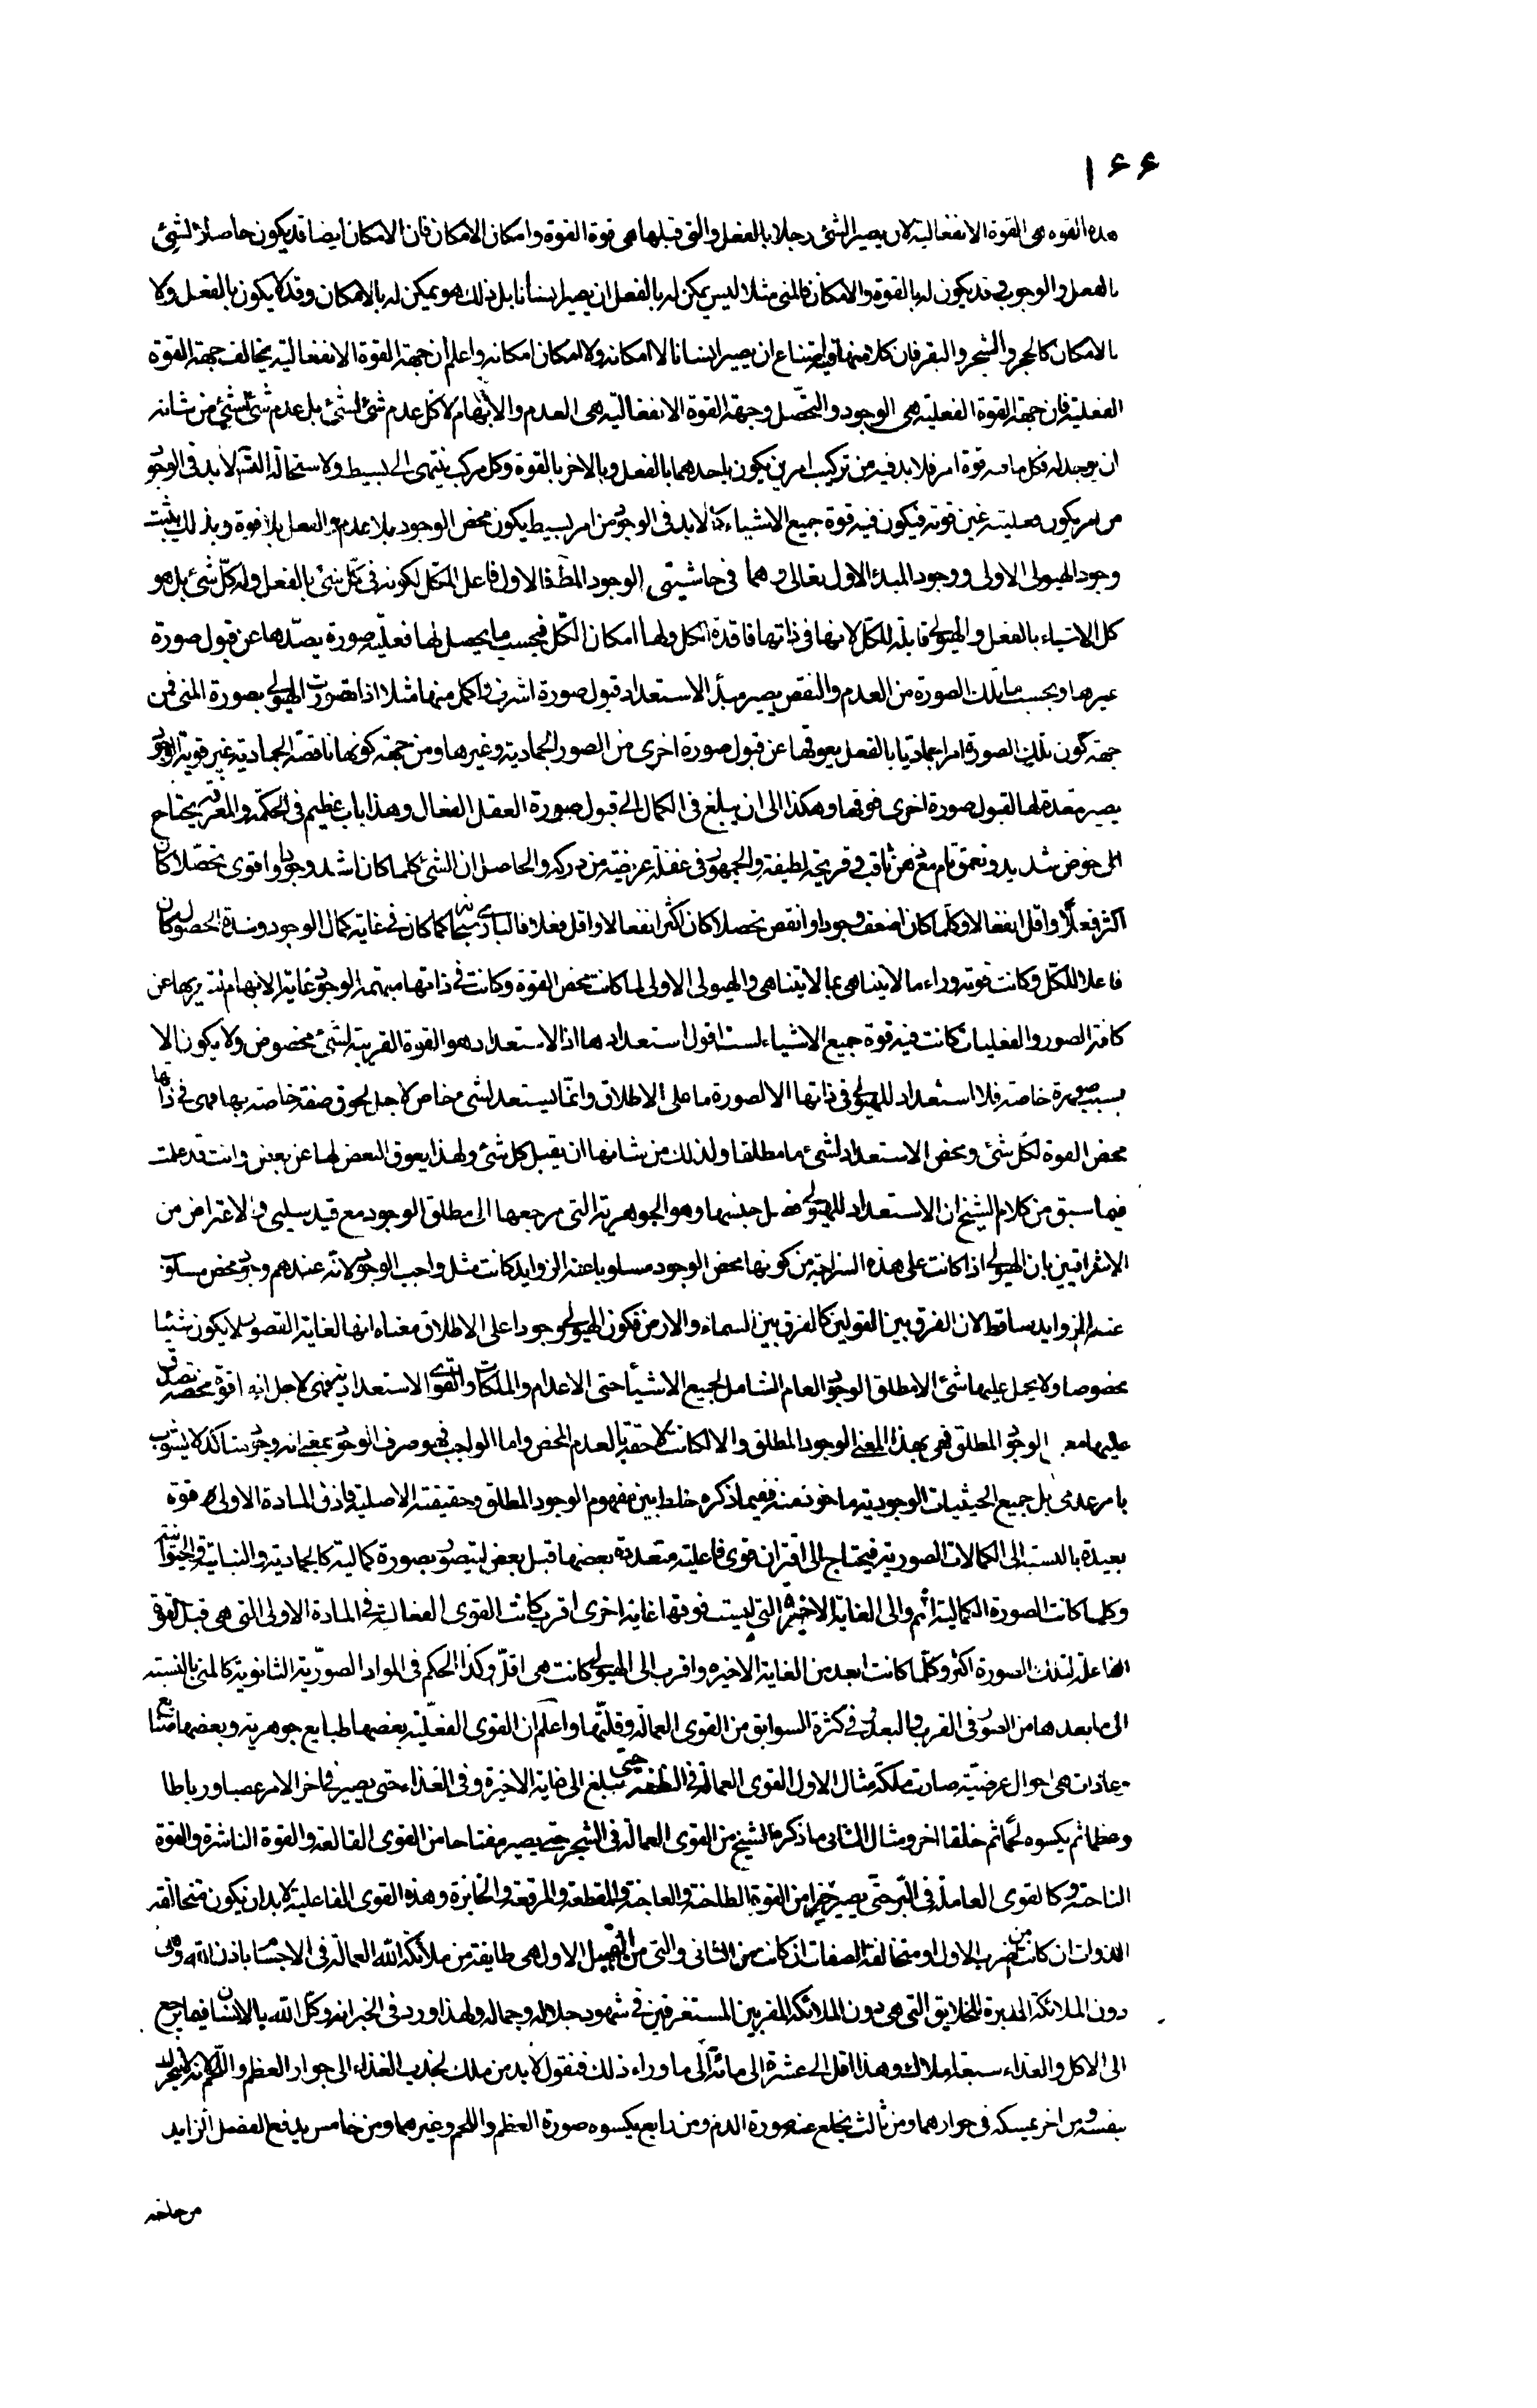 ۱۶۶
هذه القوه هى القوة الانفعالية لان يصير الشئ رجلا بالفعل والتى قبلها هى قوة القوة وامكان الامكان فان الامكان ايضا قد يكون حاصلا لشئ
بالفعل والوجوب قد يكون له بالقوة والامكان فالمنى مثلا ليس يمكن له بالفعل ان يصير انسانا بل ذلك هو يمكن له بالامكان وقد لا يكون بالفعل ولا
بالامكان كالحجر والشجر والبقر فان كلا منها امتناع ان يصير انسانا لا امكانه ولا امكان امكانه واعلم ان جهة القوة الانفعالية يخالف جهة القوة
الفعلية فان جهة القوة الفعلية هى الوجود والتحصّل وجهة القوة الانفعالية هى العدم والابهام لا كل عدم شئ لشئ بل عدم شئ لشئ من شانه
ان يوجد له فكل ما فيه قوة امر فلا بد فيه من تركيب امرين يكون باحدهما بالفعل وبالاخر بالقوة وكل مركب ينتهى الى بسيط ولاستحالة التسلسل لابد فى الوجود
من امر يكون فعليته عين قوته فيكون فيه قوة جميع الاشياء كما لابد فى الوجود من امر بسيط يكون محض الوجود بلا عدم والفعل بلا قوة وبذلك يثبت
وجود الهيولى الاولى ووجود المبدء الاول تعالى وهما فى حاشيتى الوجود المط فالاول فاعل الكل لكونه فى كل شئ بالفعل وله كلّ شئ بل هو
كل الاشياء بالفعل والهيولى قابلة للكل لانها فى ذاتها فاقدة الكل ولها امكان الكل فبحسب ما يحصل لها فعلية صورة يصدّها عن قبول صورة
غيرها وبحسب ما تلك الصورة من العدم والنقص يصير مبدأ الاستعداد قبول صورة اشرف واكمل منها مثلا اذا تصورت الهيولى بصورة المنى فمن
جهة كون تلك الصورة امرا جماديا بالفعل يعوقها عن قبول صورة اخرى من الصور الجمادية وغيرها ومن جهة كونها ناقصة الجمادية غير قوية الوجود
يصير معدة لها لقبول صورة اخرى فوقها وهكذا الى ان يبلغ فى الكمال الى قبول صورة العقل الفعال وهذا باب عظيم فى الحكمة والمعرفة يحتاج
الى خوض شديد وتعمق تام مع ذهن ثاقب وقريحة لطيفة والجمهور فى غفلة عريضة من دركه والحاصل ان الشئ كلما كان اشد وجودا واقوى تحصّلا كان
اكثر فعلا واقل انفعالا وكلما كان اضعف وجودا وانقص تحصلا كان اكثر انفعالا واقل فعلا فالبارى سبحانه كما كان فى غاية كمال الوجود وشدة الحصول كان
فاعلا للكل وكانت قوته وراء ما لا يتناهى بما لا يتناهى والهيولى الاولى لما كانت محض القوة وكانت فى ذاتها مبهمة الوجود غاية الابهام لتعريها عن
كافة الصور والفعليات كانت فيه قوة جميع الاشياء لست اقول استعدادها اذ الاستعداد هو القوة القريبة لشئ مخصوص ولا يكون الا
بسبب صورة خاصة فلا استعداد للهيولى فى ذاتها الا لصورة ما على الاطلاق وانما يستعد لشئ خاص لاجل لحوق صفة خاصة بها فهى فى ذاتها
محض القوة لكل شئ ومحض الاستعداد لشئ ما مطلقا ولذلك من شانها ان يقبل كل شئ ولهذا يعوق البعض لها عن بعض وانت قد علمت
فيما سبق من كلام الشيخ ان الاستعداد للهيولى فصل جنسها وهو الجوهرية التى مرجعها الى مطلق الوجود مع قيد سلبى فالاعتراض من
الاشراقيين بان الهيولى اذا كانت على هذه السذاجة من كونها محض الوجود مسلوبا عنه الزوايد كانت مثل واجب الوجود لانه عندهم وجود محض مسلوب
عنه الزوايد ساقط لان الفرق بين القولين كالفرق بين السماء والارض فكون الهيولى وجودا على الاطلاق معناه انها لغاية القصور لا يكون شيئا
مخصوصا ولا يحمل عليها شئ الا مطلق الوجود العام الشامل لجميع الاشياء حتى الاعدام والملكات والقوى الاستعدادية فهى لاجل انها قوة محضة تصدق
عليها معنى الوجود المطلق فهى بهذا المعنى الوجود المطلق والا لكانت لاحقة بالعدم المحض واما الواجب فهو صرف الوجود بمعنى انه وجود متأكد لا يشوب
بامر عدمى بل جميع الحيثيات الوجودية ماخوذ منه ففيما ذكره خلط بين مفهوم الوجود المطلق وحقيقته الاصلية فاذن المادة الاولى قوة
بعيدة بالنسبة الى الكمالات الصورية فيحتاج الى اقتران قوى فاعلية متعددة بعضها قبل بعض ليتصور بصورة كمالية كالجمادية والنباتية والحيوانية
وكلما كانت الصورة الكمالية اتم والى الغاية الاخيرة التى ليست فوقها غاية اخرى اقرب كانت القوى الفعالة فى المادة الاولى التى هى قبل القوة
الفاعلة لتلك الصورة اكثر وكلما كانت ابعد من الغاية الاخيرة واقرب الى الهيولى كانت هى اقلّ وكذا الحكم فى المواد الصورّية الثانوية كالمنى بالنسبة
الى ما بعدها من الصور فى القرب والبعد فى كثرة السوابق من القوى العمالة وقلتها واعلم ان القوى الفعلية بعضها طبايع جوهرية وبعضها صنايع
وعادات هى احوال عرضية صارت ملكة مثال الاول القوى العمالة فى النطفة حتى تبلغ الى غاية الاخيرة وفى الغذاء حتى يصير فى اخر الامر عصبا ورباطا
وعظما ثم يكسوه لحما ثم خلقا اخر ومثال الثانى ما ذكره الشيخ من القوى العمالة فى الشجر حتى يصير مفتاحا من القوى القالعة والقوة الناشرة والقوة
الناحتة وكالقوى العاملة فى البّر حتى يصير خبزا من القوة الطاحنة والعاجنة والمقطعة والمرققة والخابزة وهذه القوى الفاعلية لابد ان تكون متخالفة
الذوات ان كانت من الضرب الاول او متخالفة الصفات ان كانت من الثانى والتى من القبيل الاول هى طايفة من ملائكة الله العمالة فى الاجسام باذن الله وهى
دون الملائكة المدبرة للخلايق التى هى دون الملائكة المقربين المستغرقين فى شهود جلاله وجماله ولهذا ورد فى الخبر انه وكّل الله بالانسان فيما يرجع
الى الاكل والغذاء سبعة املاك وهذا اقل الى عشرة الى مائة الى ما وراء ذلك فنقول لابد من ملك لجذب الغذاء الى جوار العظم واللحم لانه لا يتحرك
بنفسه ومن اخر يمسكه فى جوارهما ومن ثالث يخلع عنه صورة الدم ومن رابع يكسوه صورة العظم واللحم وغيرهما ومن خامس يدفع الفضل الزايد
من حاجته